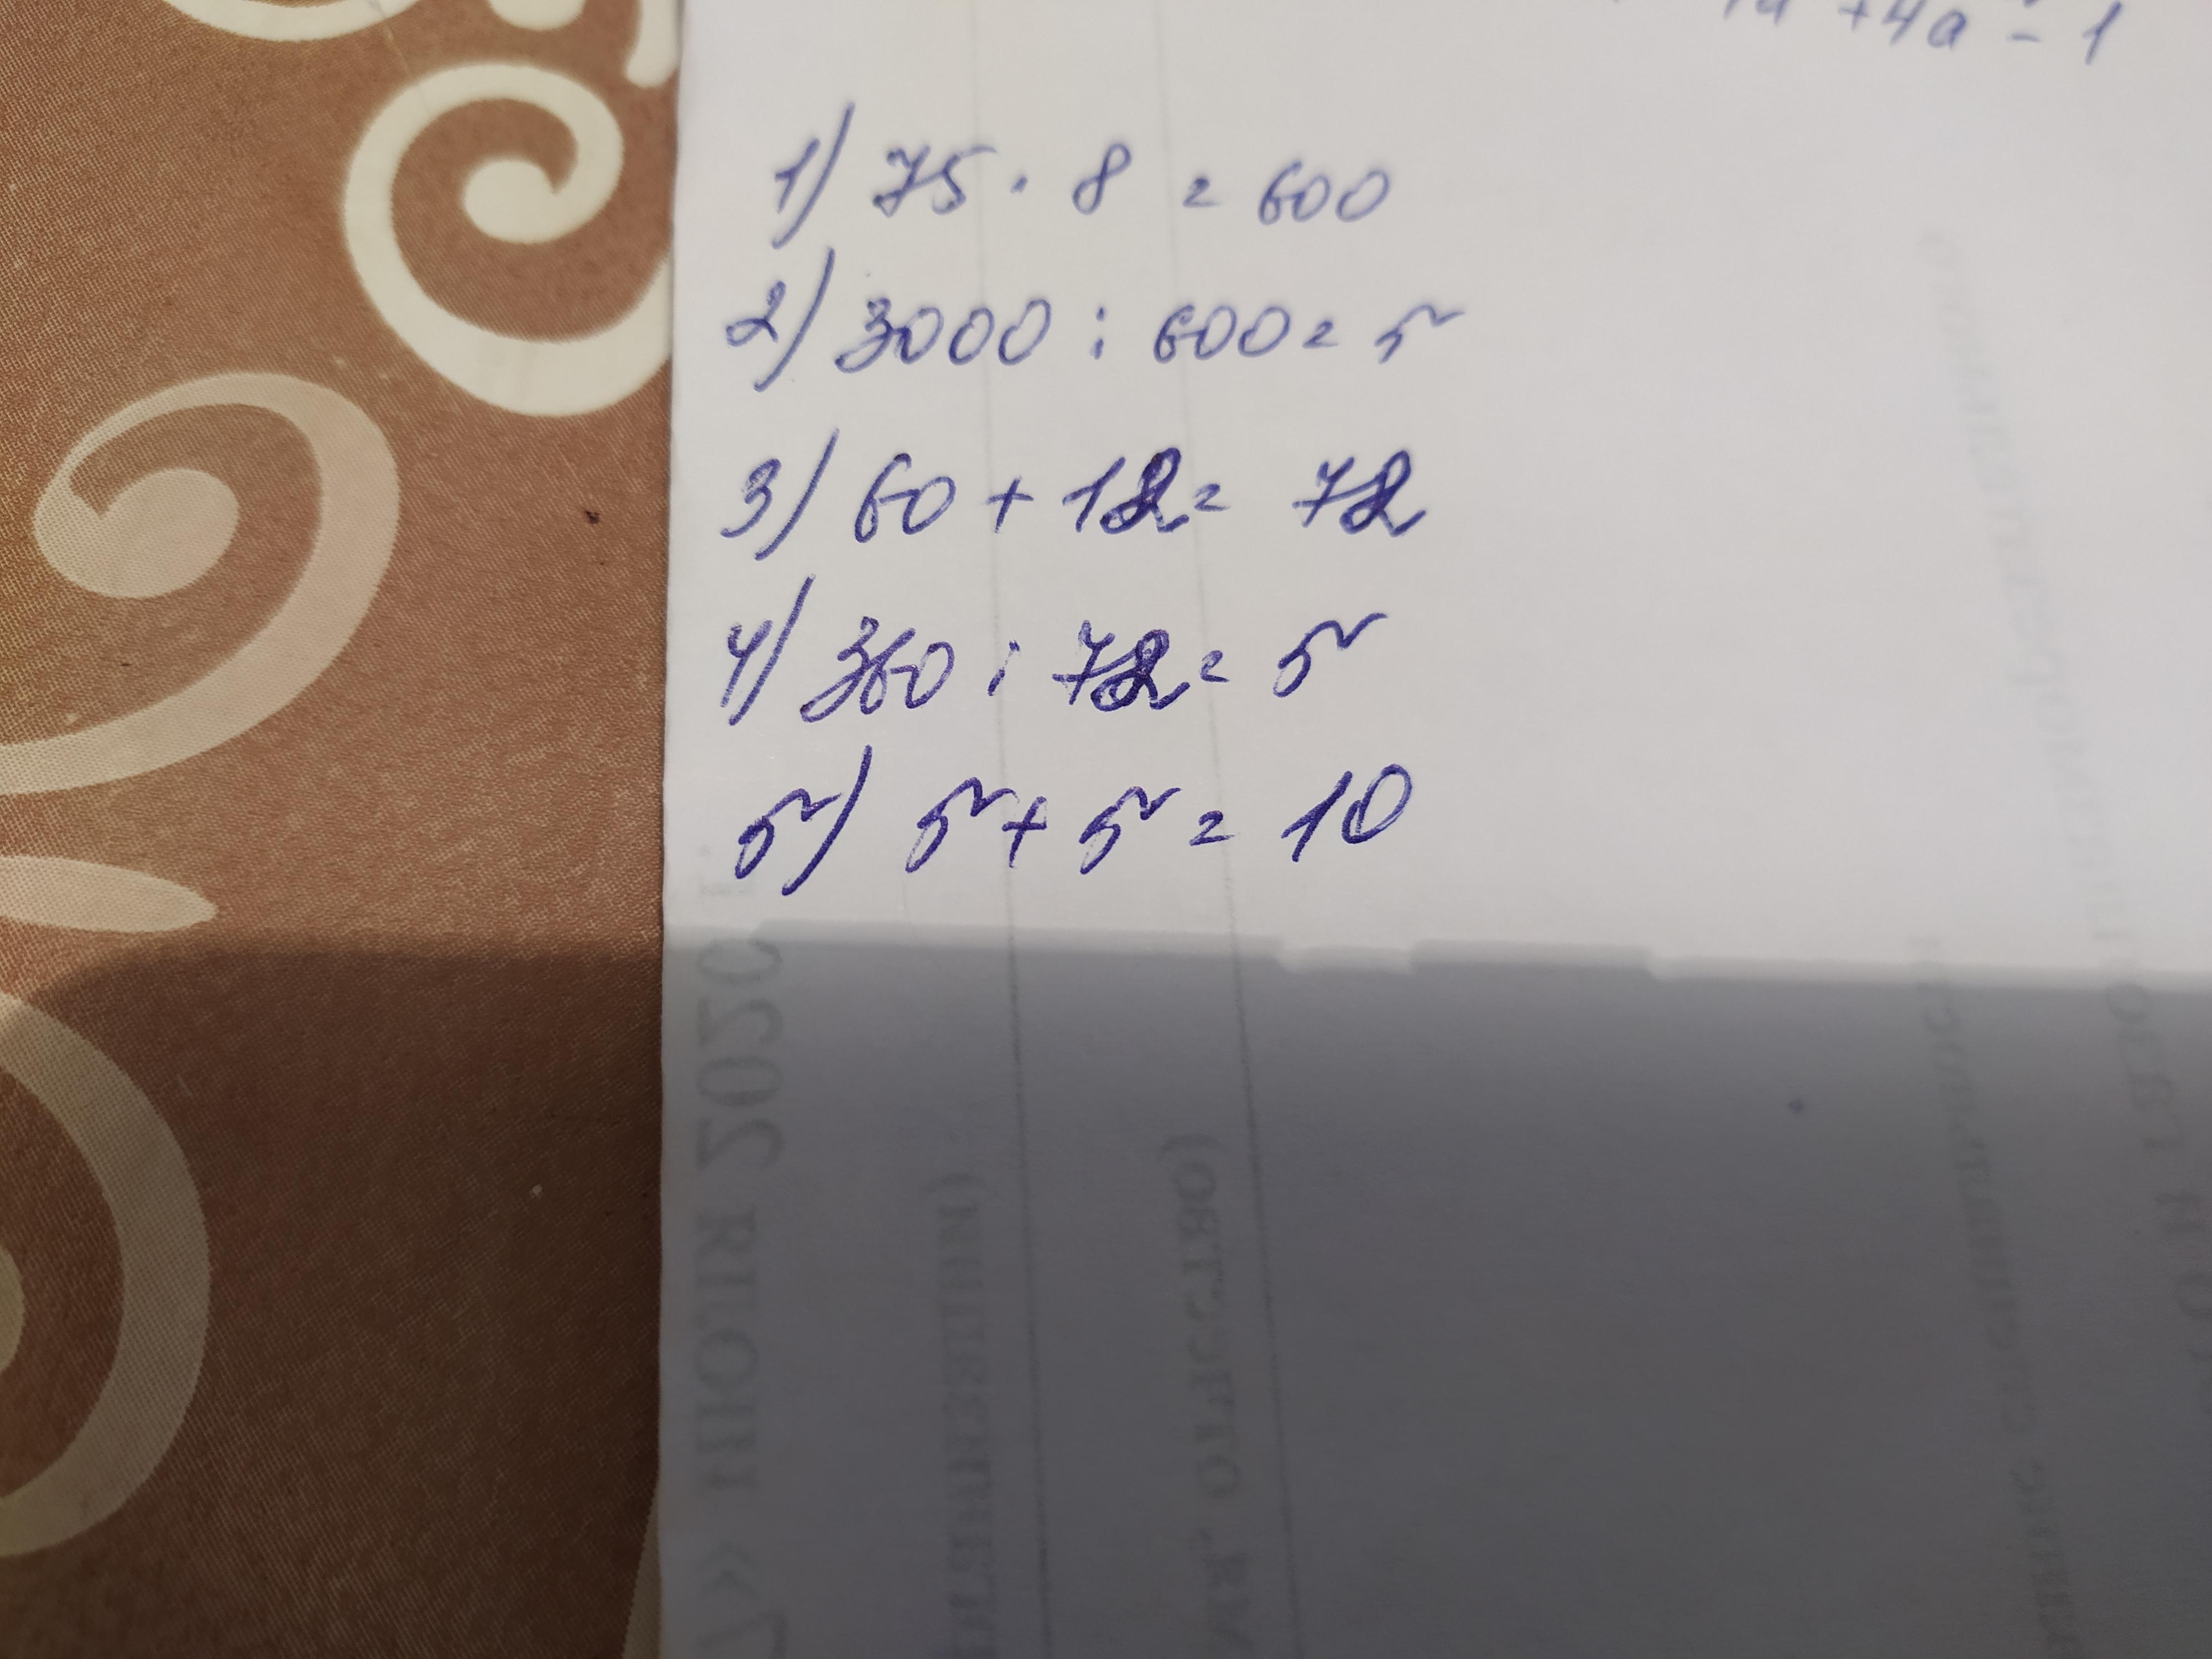 +4a - 1
1) 75 · 8 = 600
2) 3000 : 600 = 5
3) 60 + 12 = 72
4) 360 : 72 = 5
5) 5 + 5 = 10